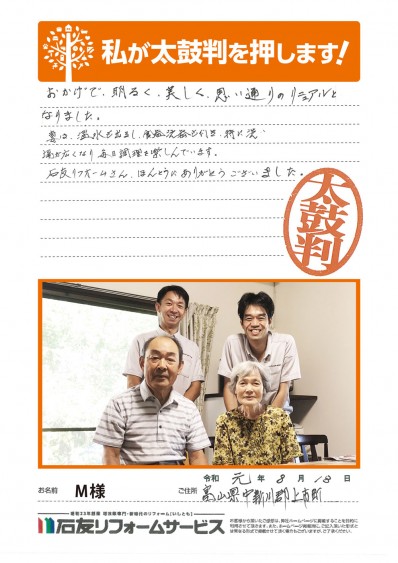 私が太鼓判を押します!
おかげで、明るく、美しく、思い通りのリニューアルと
なりました。
妻は、温水も出るし、食器洗器も付き、特に洗い
場が広くなり毎日調理を楽しんでいます。
石友リフォームさん、ほんとうにありがとうございました。
太鼓判
令和 元 年 8 月 18 日
お名前 M様 ご住所 富山県中新川郡上市町
石友リフォームサービス